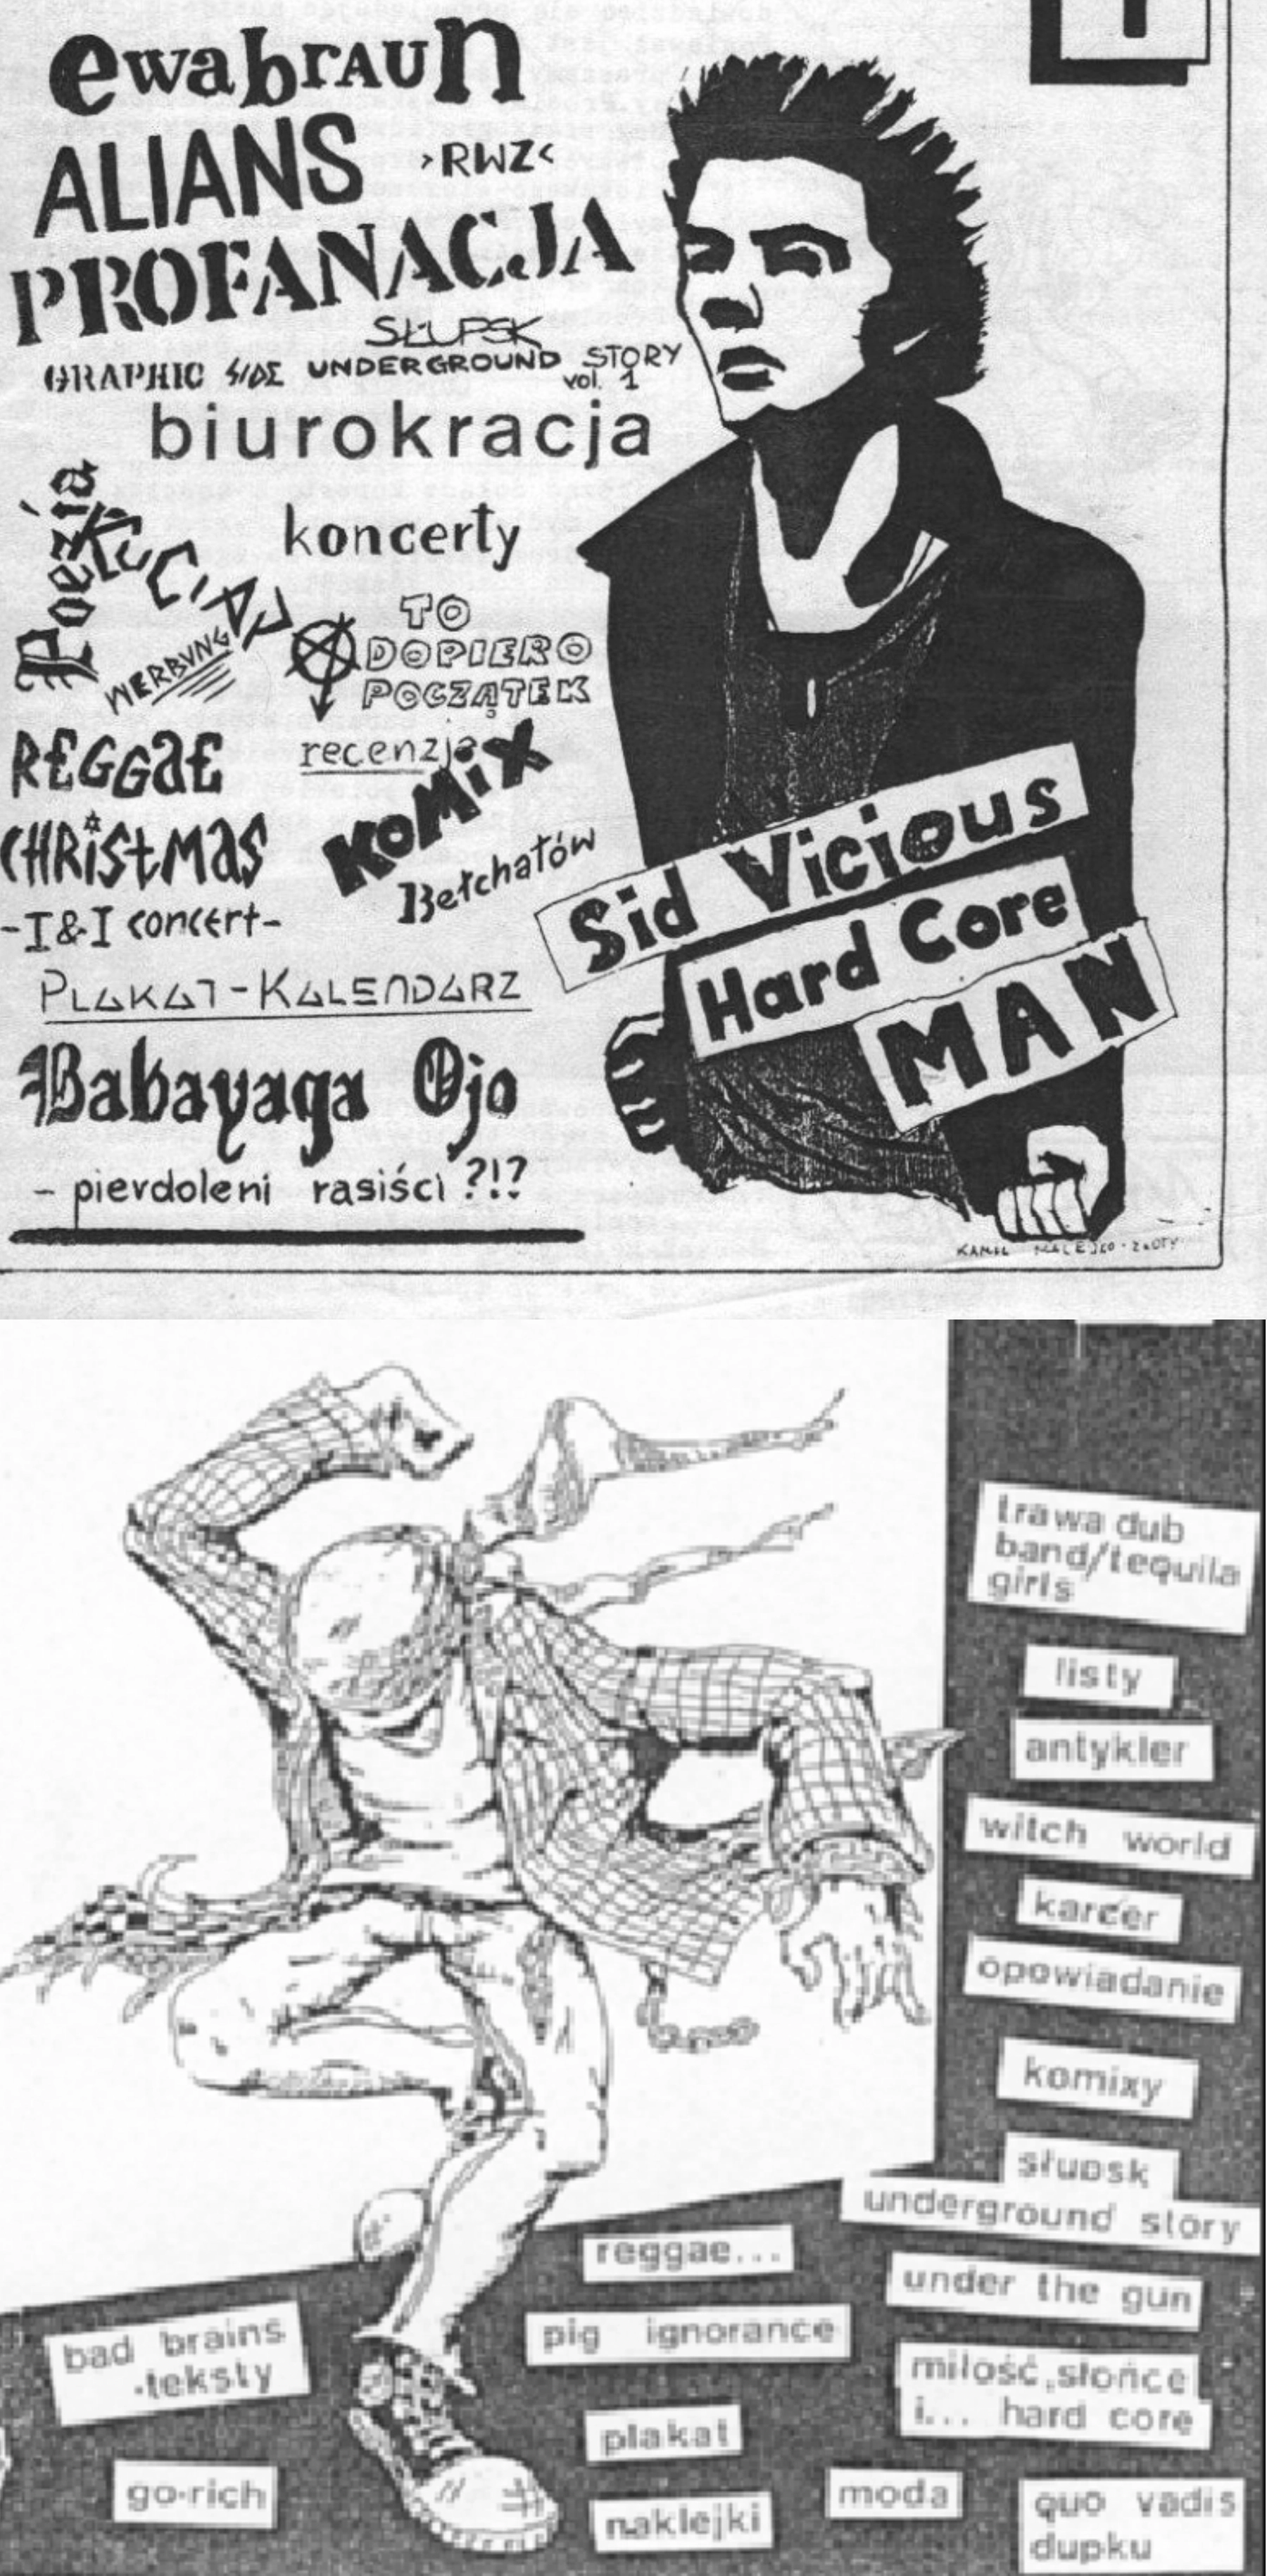 ewabraun
ALIANS
>RWZ<
PROFANACJA
SŁUPSK
GRAPHIC SIDE UNDERGROUND STORY
vol. 1
biurokracja
Poezja
KUCIAJ
koncerty
WERBUNG
TO
DOPIERO
POCZĄTEK
REGGaE
CHRiStMaS
-I&I concert-
recenzje
KoMiX
Bełchatów
PLAKAT-KALENDARZ
Babayaga Ojo
- pierdoleni rasiści ?!?
Sid Vicious
Hard Core
MAN
KAMIL MALEJKO - ZŁOTY
trawa dub
band/tequila
girls
listy
antykler
witch world
karcer
opowiadanie
komixy
słupsk
underground story
reggae...
under the gun
bad brains
-teksty
pig ignorance
miłość,słońce
i... hard core
plakat
go-rich
naklejki
moda
quo vadis
dupku